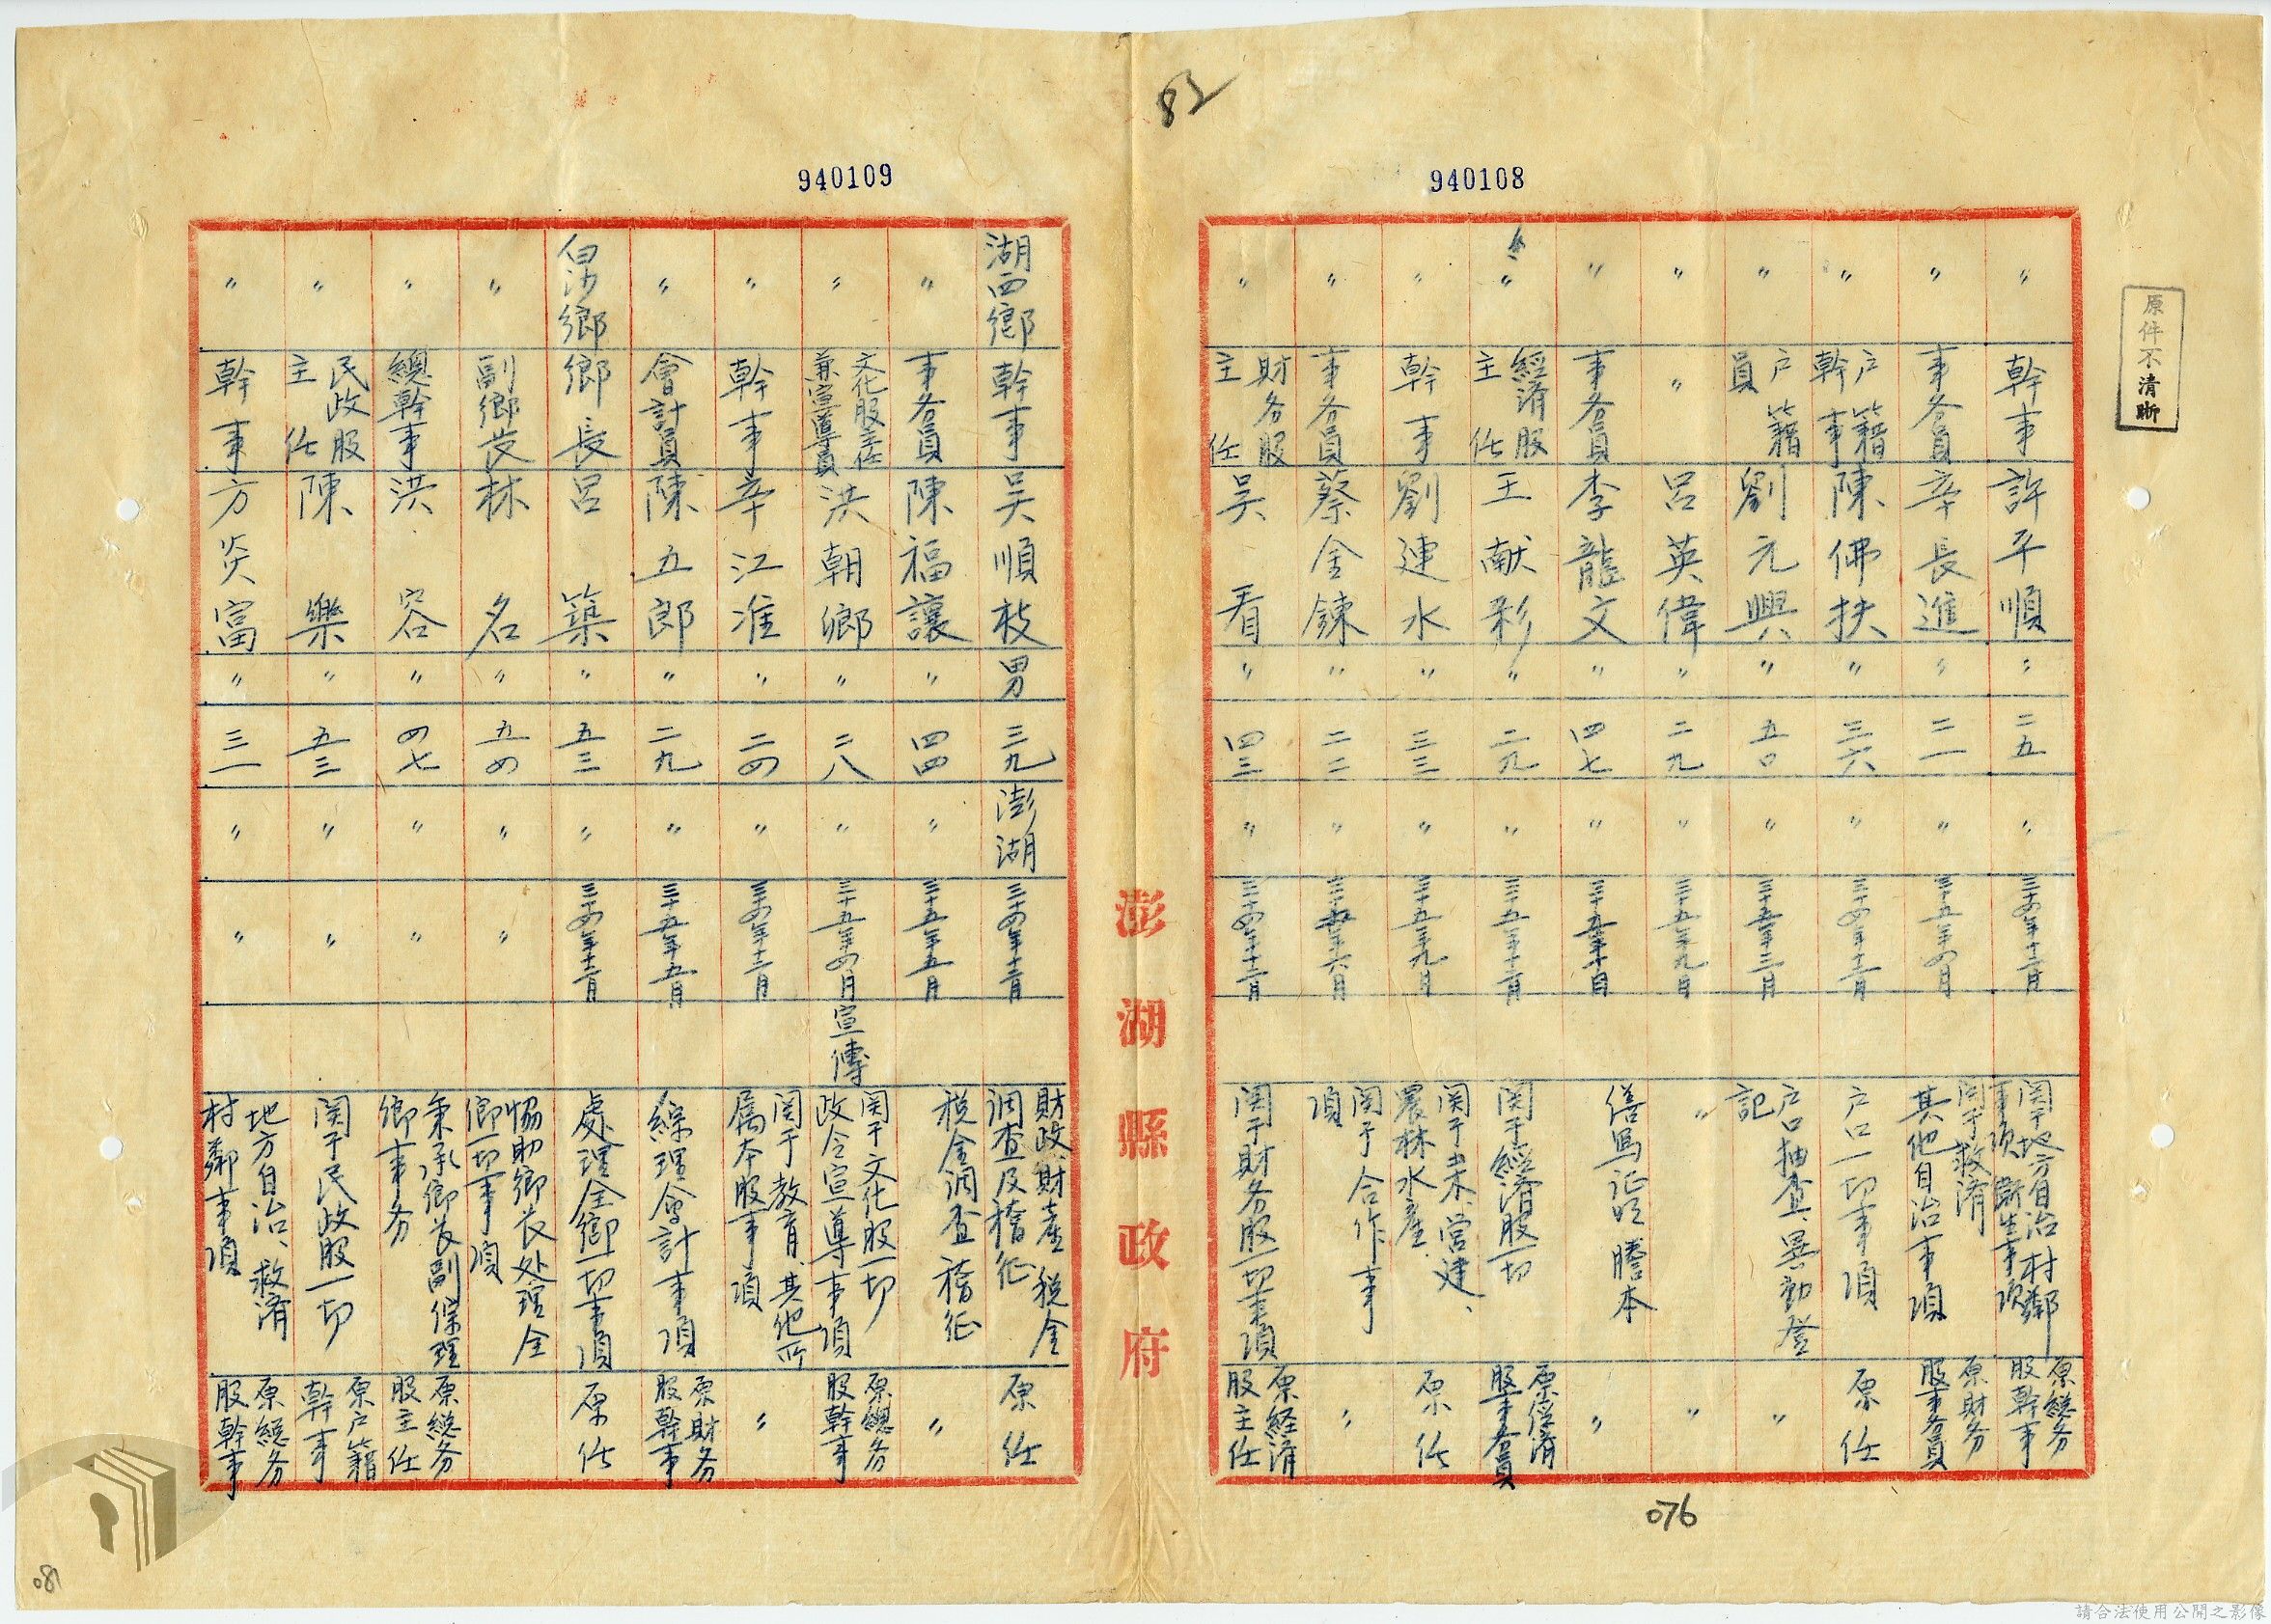 82
940108
原件不清晰
〃 幹事 許平順 〃 二五 〃 三十四年十二月 関于地方自治村鄰事項衛生事項 原總务股幹事
〃 事务員 辛長進 〃 二一 〃 三十五年四月 関于救濟其他自治事項 原財务股事务員
〃 户籍幹事 陳佛扶 〃 三六 〃 三十四年十二月 户口一切事項 原任
〃 户籍員 劉元興 〃 五〇 〃 三十五年三月 户口抽查、異動登記 〃
〃 〃 呂英偉 〃 二九 〃 三十五年九月 〃 〃
〃 事务員 李龍文 〃 四七 〃 三十五年十月 繕寫証明謄本 〃
〃 經濟股主任 王献彩 〃 二九 〃 三十五年十二月 関于經濟股一切 原經濟股事务員
〃 幹事 劉連水 〃 三三 〃 三十五年九月 関于業、営建、農林水産 原任
〃 事务員 蔡金鍊 〃 二二 〃 六月 関于合作事項 〃
〃 財务股主任 吴看 〃 四三 〃 三十四年十二月 関于財务股一切事項 原経濟股主任
076
澎湖縣政府
940109
湖西鄉 幹事 吴順枝 男 三九 澎湖 三十四年十二月 財政財産税金調查及稽征 原任
〃 事务員 陳福讓 〃 四四 〃 三十五年五月 税金調查稽征 〃
〃 文化股主任兼宣導員 洪朝鄉 〃 二八 〃 三十五年四月 宣傳 関于文化股一切政令宣導事項 原總务股幹事
〃 幹事 辛江淮 〃 二四 〃 三十四年十二月 関于教育、其他所属本股事項 〃
〃 會計員 陳五郎 〃 二九 〃 三十五年五月 綜理會計事項 原財务股幹事
白沙鄉 鄉長 呂築 〃 五三 〃 三十四年十二月 處理全鄉一切事項 原任
〃 副鄉長 林名 〃 五四 〃 〃 恊助鄉长处理全鄉一切事項
〃 總幹事 洪容 〃 四七 〃 〃 秉承鄉长副條理鄉事务 原總务股主任
〃 民政股主任 陳樂 〃 五三 〃 〃 関于民政股一切 原户籍幹事
〃 幹事 方炎富 〃 三一 〃 〃 地方自治、救濟村鄰事項 原總务股幹事
081
請合法使用公開之影像